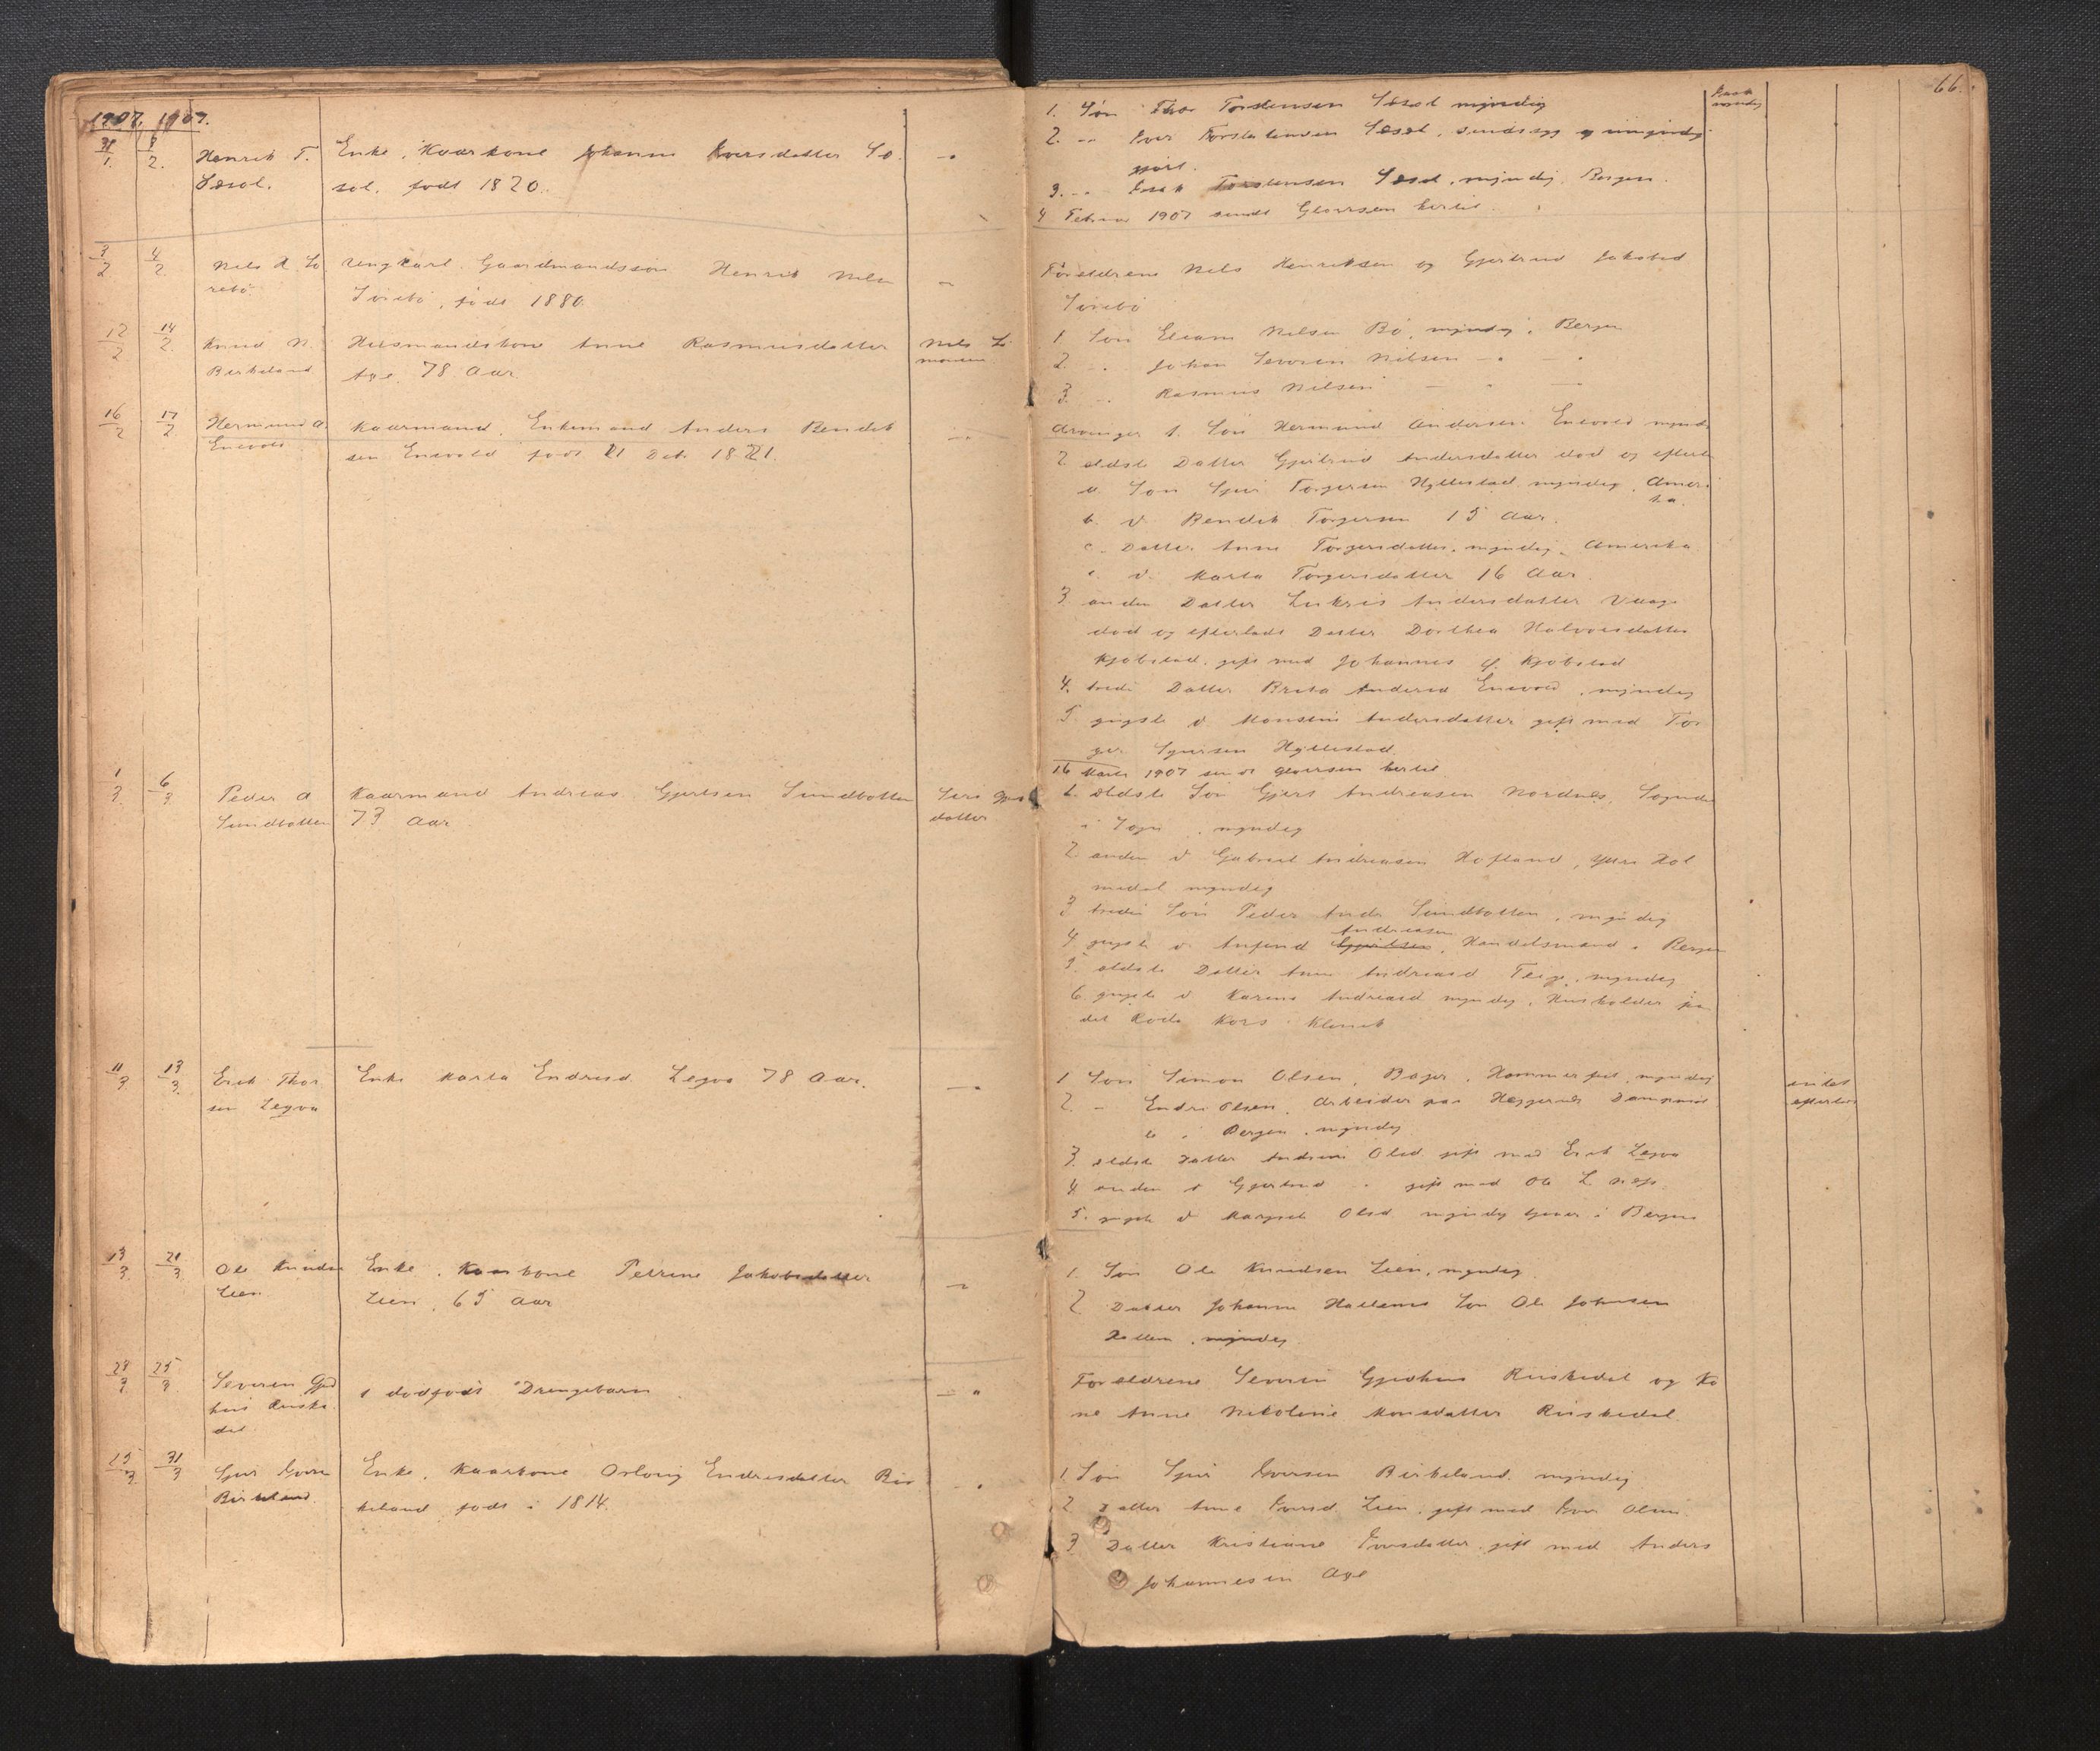 1907. 1907.
31/1. 8/2. Henrik T. Enke, Kaarkone Johanne Iversdatter Sø
Søsol. sol. født 1820.
3/2 4/2 Nels H. Sø Ungkarl. Gaardmandssøn Henrik Nils
rebø. Sørebø, født 1880
12/2 14/2. Knud N. Husmandskone Anne Rasmusdatter Nels
Birkeland 78 Aar.
16/2 17/2 Hermund A. Kaarmand, Enkemand Anders Bendik
Enevold sen Enevold født 21 Dcb. 1821.
1/3 6/3 Peder A Kaarmand Andreas Gjertsen Sundbotten
Sundbotten 73 Aar datter
11/3 13/3. Erik Thor Enke Marta Endresd. Legva 78 Aar.
sen Legva
13/3 21/3 Ole Knudsen Enke. Kaarkone Petrine Jakobsdatter
Lien Lien, 65 Aar
23/3 25/3 Severin Gjed 1 dødfødt Drengebarn
hus Riiske
dal
15/3 31/3 Sjur Ivers Enke. Kaarkone Endresdatter Bir
Birkeland. keland født i 1814.
66.
myndig
1. Søn Thor Torstensen Søsol myndig
2. -"- Iver Torstensen Søsol, sindssyg og umyndig
gjort.
3. -"- Torstensen Søsol, myndig, Bergen.
4 Februar 1907 sendt hertil.
Forældrene Nils Henriksen og Gjertrud Jakobsd
Sørebø
1 Søn Nilsen Bø, myndig, Bergen
2. " Johan Severin Nilsen - " - "
3. " Rasmus Nilsen - " -
Arvinger 1. Søn Hermund Andersen Enevold mynd
2 ældste Datter Gjertrud Andersdatter død og efterl
a. Søn Sjur Torgersen Hyllestad myndig, Ameri
ka.
b. d. Bendik Torgersen 15 Aar.
c. Datter Anne Torgersdatter, myndig, Amerika
d. Marta Torgersdatter 16 Aar.
3 anden Datter Andersdatter
død og efterlod Datter Dorthea Halvorsdatter
Kjøbstad, gift med Johannes Kjøbstad
4. tredi Datter Brita Andersd Enevold, myndig
5. yngste d. Andersdatter gift med Tor
ger Sjursen Hyllestad.
16 Marts 1907 sendt hertil
1. ældste Søn Gjert Andreasen Nordnes, Sogndal
i Sogn, myndig
2 anden d Gabriel Andreasen Hofland, Ytre Hol
medal myndig
3 tredi Søn Peder Andr. Sundbotten, myndig
Andreasen
4 yngste d. Anfind Gjertsen, Handelsmand i Bergen
5. ældste Datter Anne Andreasd Teige, myndig
6 yngste d Karen Andreasd myndig, Husholder på
det Røde Kors Klinik
1 Søn Simon Olsen, Bager, Hammerfest, myndig
2. - Endre Olsen, Arbeider paa Dampmøl
le i Bergen, myndig
3. ældste Datter Olsd. gift med Erik Legva
4 anden d Gjertrud " gift med Ole
5. yngste d. Olsd. myndig i Bergen
intet
efterladt
1. Søn Ole Knudsen Lien, myndig
2 Datter Johanne Søn Ole Johnsen
myndig.
Forældrene Severin Gjedhus Riiskedal og Ko
ne Anne Nikoline Monsdatter Riiskedal.
1 Søn Sjur Iversen Birkeland. myndig
2 Datter Anne Iversd. Lien, gift med Iver Olsen.
3 Datter Kristiane Iversdatter gift med Anders
Johannesen